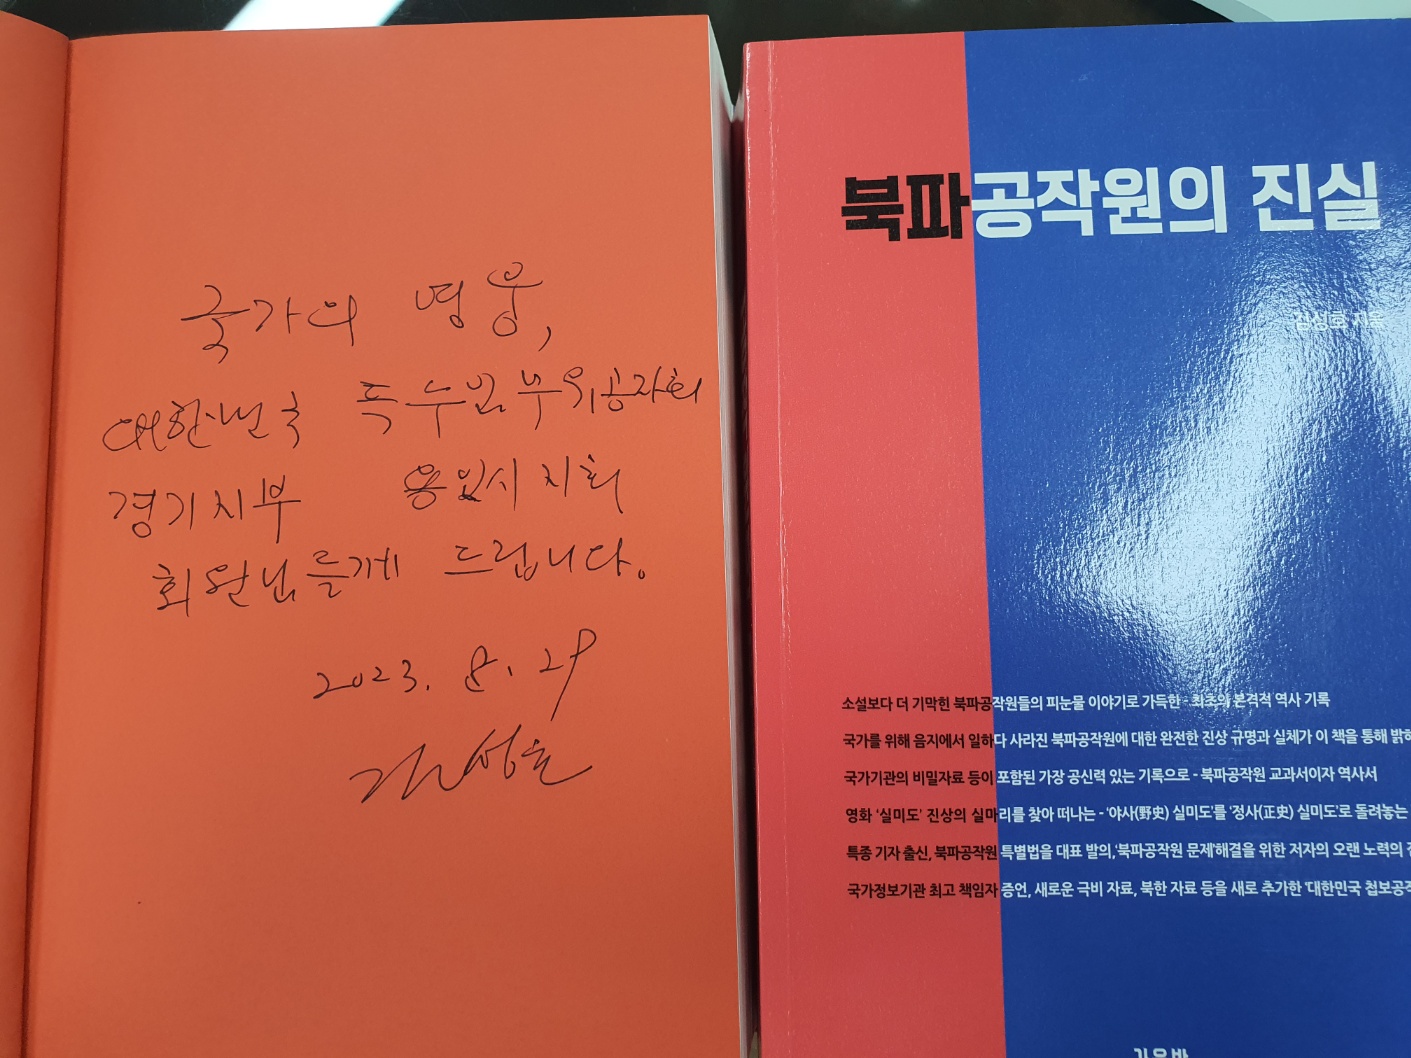 국가의 영웅,
대한민국 특수임무유공자회
경기지부 용인시 지회
회원님들께 드립니다.
2023. 8. 29
북파공작원의 진실
김성호 지음
소설보다 더 기막힌 북파공작원들의 피눈물 이야기로 가득한 - 최초의 본격적 역사 기록
국가를 위해 음지에서 일하다 사라진 북파공작원에 대한 완전한 진상 규명과 실체가 이 책을 통해 밝혀
국가기관의 비밀자료 등이 포함된 가장 공신력 있는 기록으로 - 북파공작원 교과서이자 역사서
영화 '실미도' 진상의 실마리를 찾아 떠나는 - '야사(野史) 실미도'를 '정사(正史) 실미도'로 돌려놓는
특종 기자 출신, 북파공작원 특별법을 대표 발의, '북파공작원 문제'해결을 위한 저자의 오랜 노력의
국가정보기관 최고 책임자 증언, 새로운 극비 자료, 북한 자료 등을 새로 추가한 '대한민국 첩보공작